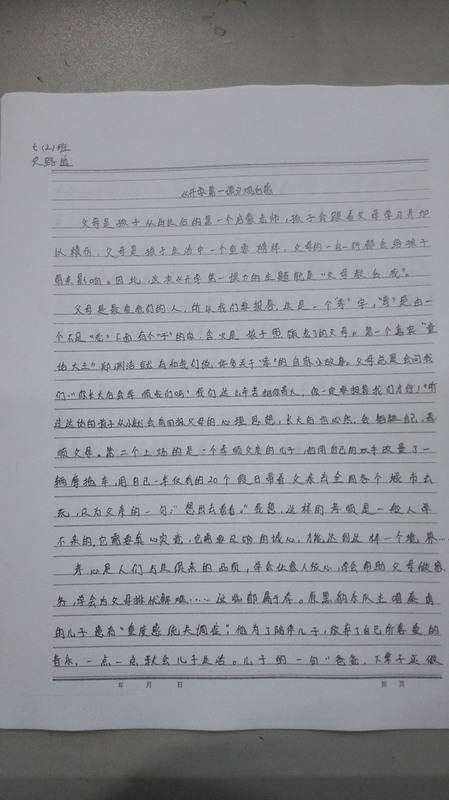 七(2)班
《开学第一课》观后感
父母是孩子从出生后的第一个启蒙老师，孩子会跟着父母学习并加
以模仿，父母是孩子生活中一个重要榜样，父母的一言一行都会给孩子
带来影响。因此，这次《开学第一课》的主题就是"父母教会我"。
父母是最爱我们的人，所以我们要报答，这是一个"孝"字，"孝"是由一
个不足"老"下面有个"子"的字，含义是孩子照顾老了的父母。第一个嘉宾"童
话大王"郑渊洁就有和我们说，许多关于"孝"的自家小故事。父母总是会问我
们："你长大后会孝顺我们吗？我们这么辛苦
这位的孩子从小就会有回报父母的心理思想，长大后也必然，会勉励自己，孝
顺父母。第二个上场的是一个孝顺父亲的儿子，他用自己的双手改造了一
辆摩托车，用自己一年仅有的20个假日带着父亲去全国各个城市去
玩，只为父亲的一句："想出去看看。"我想，这样的孝顺是一般人学
不来的，它需要真心实意，它需要足够的信心，才能达到这样一个境界…
孝心是人们与生俱来的品质，学会让家人放心，学会帮助父母做家
务，学会为父母排忧解难……这些都属于孝。原黑豹乐队主唱秦勇
的儿子患有"重度感统失调症"，他为了陪伴儿子，放弃了自己所喜爱的
音乐，一点一点教会儿子生活。儿子的一句"爸爸，下辈子还做
年 月 日 第 页